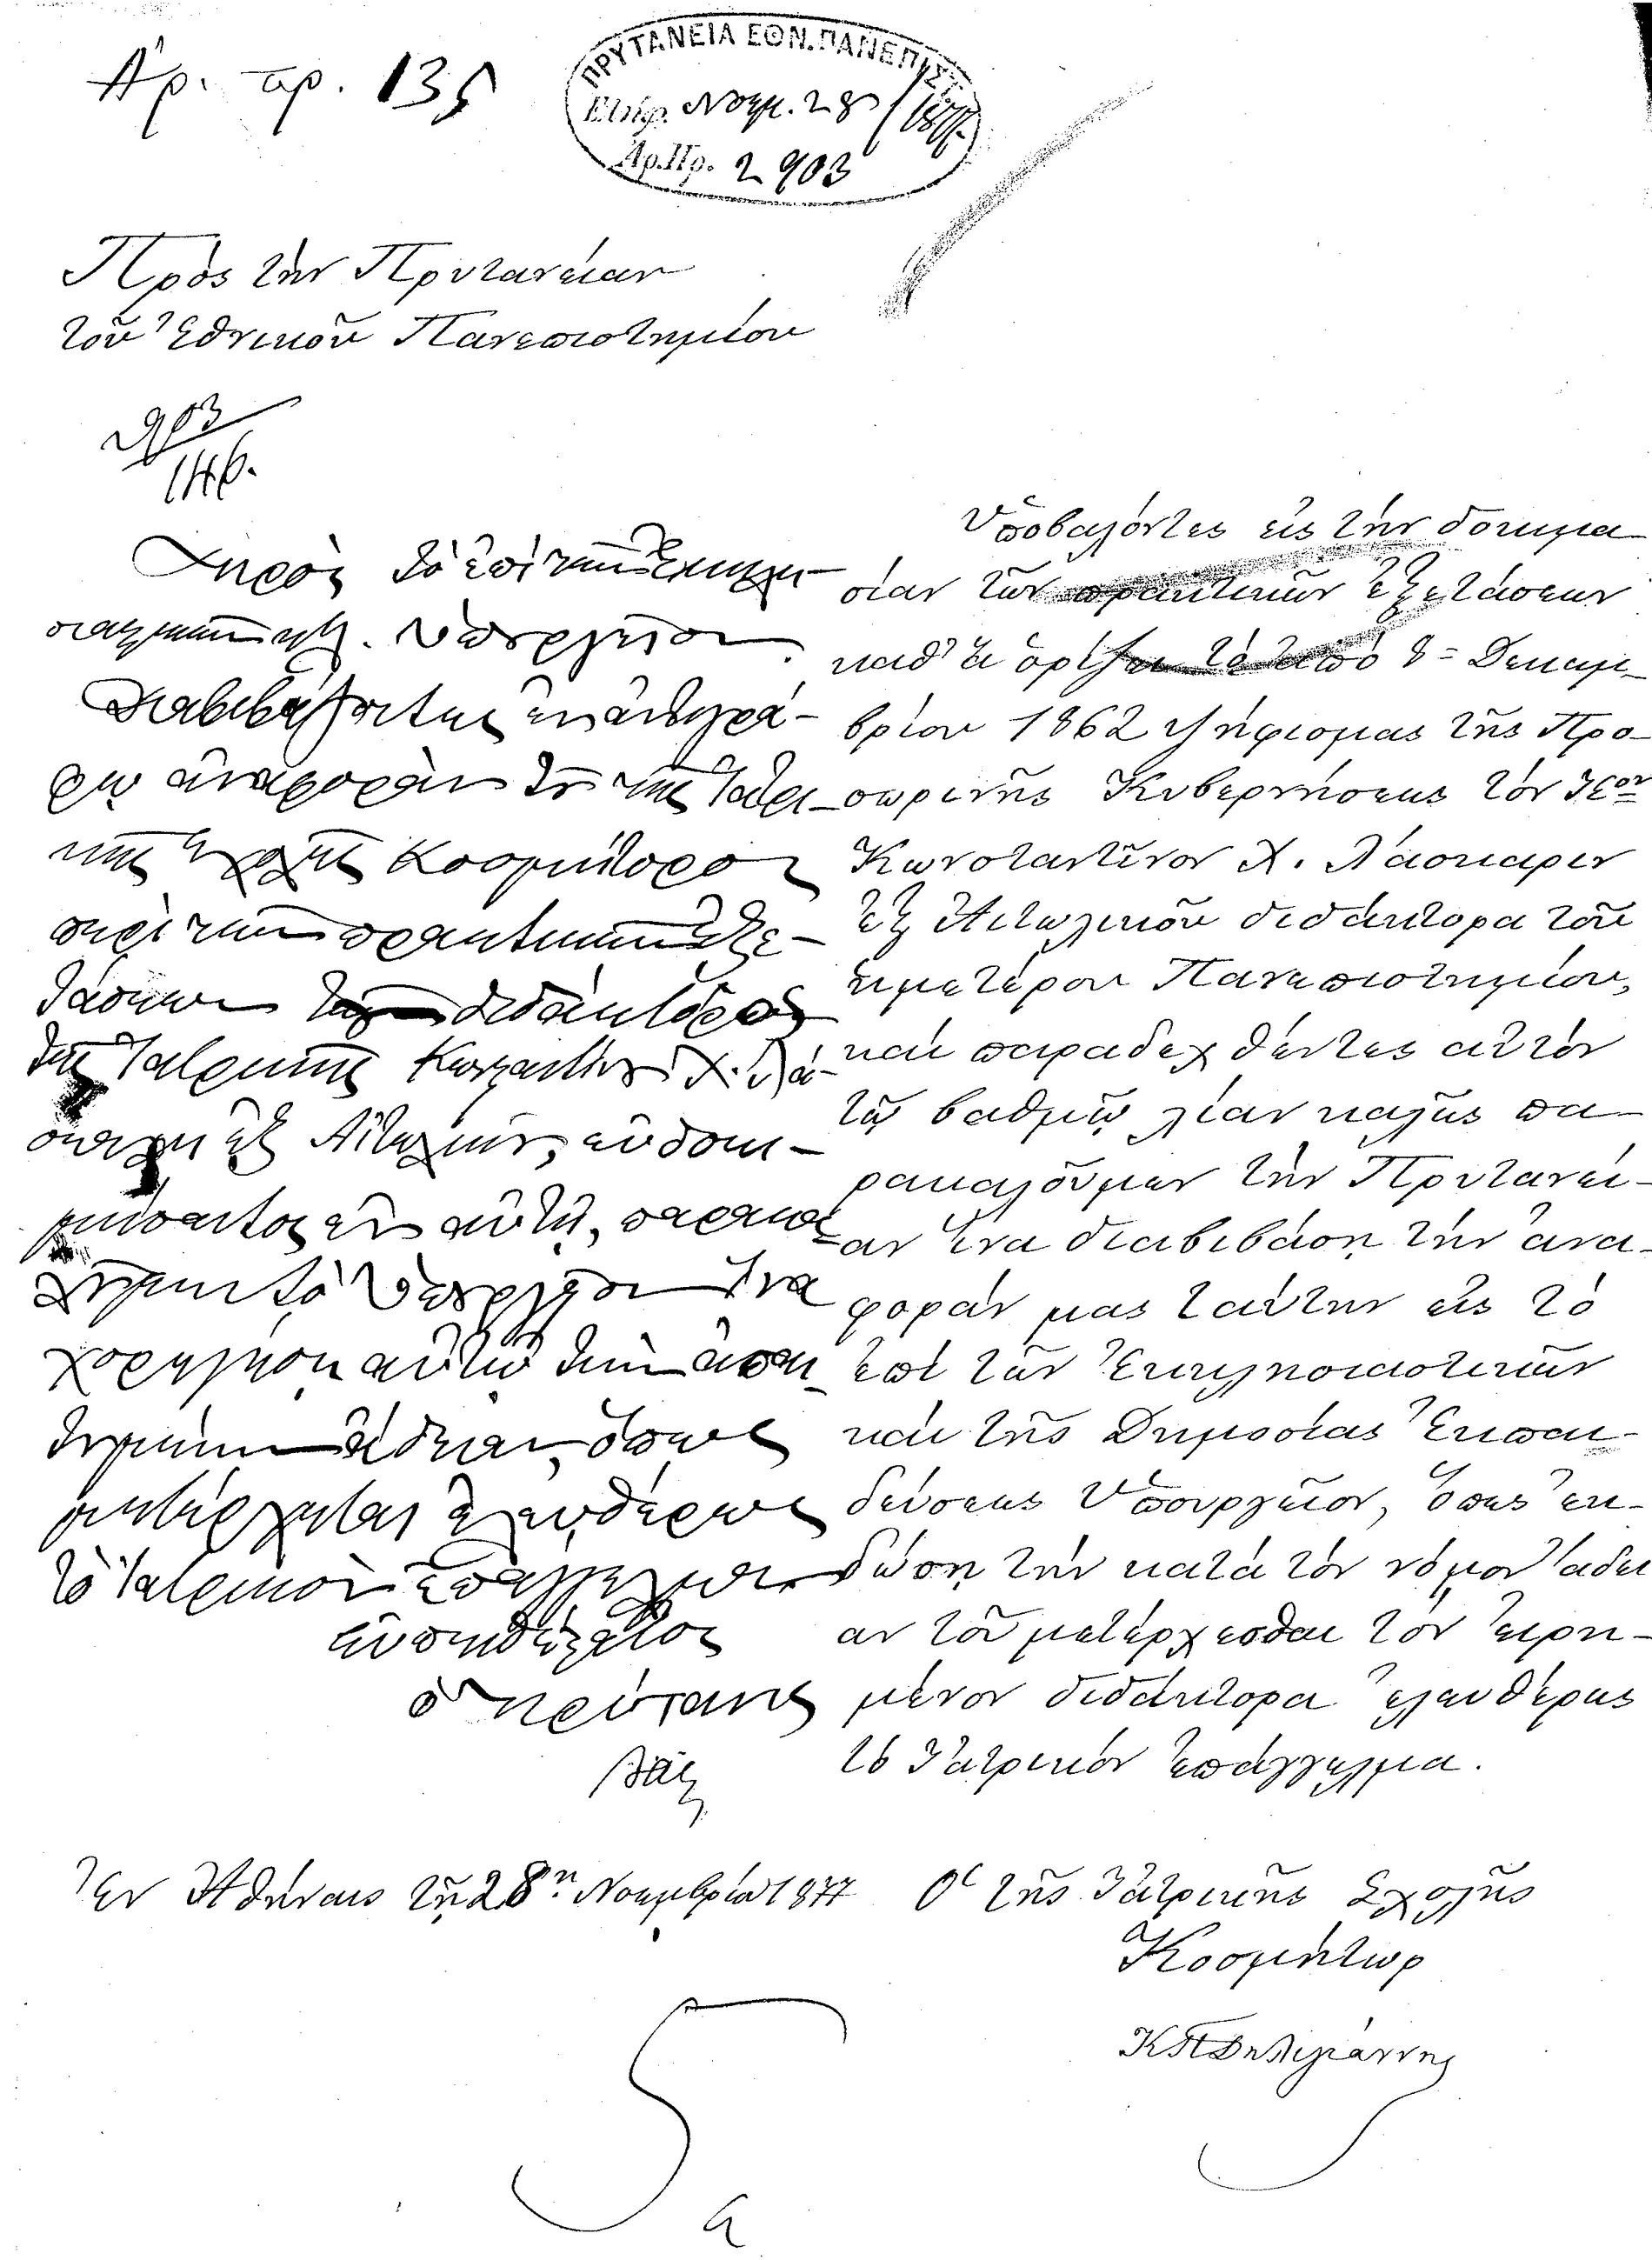 Ἀρ. πρ. 135
ΠΡΥΤΑΝΕΙΑ ΕΘΝ. ΠΑΝΕΠΙΣΤ.
Ἐλήφ. Νοεμ. 28 / 1877
Ἀρ. Πρ. 2903
Πρὸς τὴν Πρυτανείαν
τοῦ Ἐθνικοῦ Πανεπιστημίου
2903
146.
Πρὸς τὸ ἐπὶ τῶν Ἐκκλη-
σιαστικῶν κτλ. Ὑπουργεῖον
Διαβιβάζοντες ἐν ἀντιγρά-
φῳ ἀναφορὰν τοῦ τῆς Ἰατρι-
κῆς Σχολῆς Κοσμήτορος
περὶ τῶν πρακτικῶν ἐξε-
τάσεων τοῦ διδάκτορος
τῆς Ἰατρικῆς Κωνσταντίνου Χ. Λά-
σκαρη ἐξ Αἰτωλικοῦ, εὐδοκι-
μήσαντος ἐν αὐταῖς, παρακα-
λοῦμεν τὸ Ὑπουργεῖον ἵνα
χορηγήσῃ αὐτῷ τὴν ἀπαι-
τουμένην ἄδειαν, ὅπως
μετέρχηται ἐλευθέρως
τὸ Ἰατρικὸν ἐπάγγελμα.
Εὐπειθέστατος
ὁ Πρύτανις
Ὑποβαλόντες εἰς τὴν δοκιμα-
σίαν τῶν πρακτικῶν ἐξετάσεων
καθ' ἃ ὁρίζει τὸ ἀπὸ 8 = Δεκεμ-
βρίου 1862 ψήφισμας τῆς Προ-
σωρινῆς Κυβερνήσεως τὸν Ἰατρὸν
Κωνσταντῖνον Χ. Λάσκαριν
ἐξ Αἰτωλικοῦ διδάκτορα τοῦ
ἡμετέρου Πανεπιστημίου,
καὶ παραδεχθέντες αὐτὸν
τῷ βαθμῷ λίαν καλῶς πα-
ρακαλοῦμεν τὴν Πρυτανεί-
αν ἵνα διαβιβάσῃ τὴν ἀνα-
φοράν μας ταύτην εἰς τὸ
ἐπὶ τῶν Ἐκκλησιαστικῶν
καὶ τῆς Δημοσίας Ἐκπαι-
δεύσεως Ὑπουργεῖον, ὅπως ἐκ-
δώσῃ τὴν κατὰ τὸν νόμον ἄδει
αν τοῦ μετέρχεσθαι τὸν εἰρη-
μένον διδάκτορα ἐλευθέρως
τὸ Ἰατρικὸν ἐπάγγελμα.
Ἐν Ἀθήναις τῇ 28ῃ Νοεμβρίου 1877
Ὁ τῆς Ἰατρικῆς Σχολῆς
Κοσμήτωρ
Κ Π Δηλιγιάννης